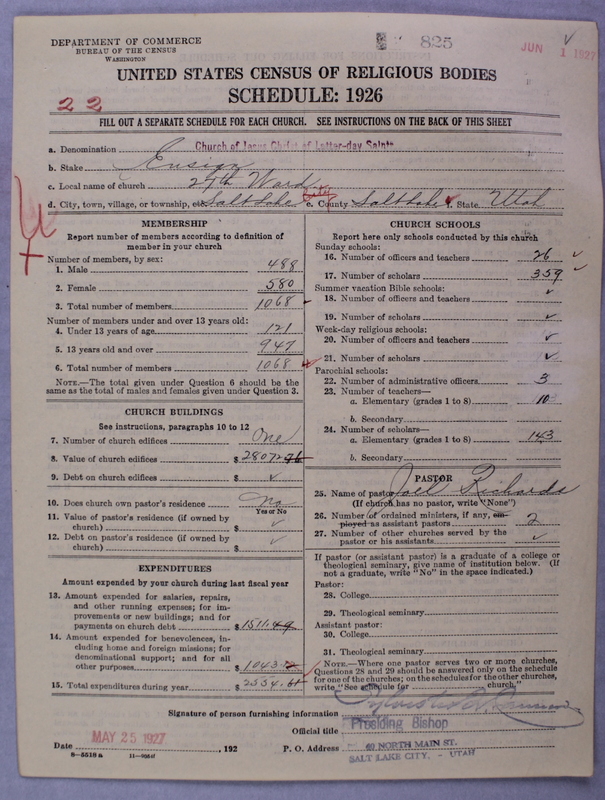 DEPARTMENT OF COMMERCE
BUREAU OF THE CENSUS
WASHINGTON
825
JUN 1 1927
UNITED STATES CENSUS OF RELIGIOUS BODIES
SCHEDULE: 1926
22
FILL OUT A SEPARATE SCHEDULE FOR EACH CHURCH. SEE INSTRUCTIONS ON THE BACK OF THIS SHEET
a. Denomination Church of Jesus Christ of Latter-day Saints
b. Stake Ensign
c. Local name of church 27th Ward
d. City, town, village, or township, etc. Salt Lake City e. County Salt Lake f. State Utah
MEMBERSHIP
Report number of members according to definition of member in your church
Number of members, by sex:
1. Male 488
2. Female 580
3. Total number of members 1068
Number of members under and over 13 years old:
4. Under 13 years of age 121
5. 13 years old and over 947
6. Total number of members 1068
NOTE.—The total given under Question 6 should be the
same as the total of males and females given under Question 3.
CHURCH BUILDINGS
See instructions, paragraphs 10 to 12
7. Number of church edifices One
8. Value of church edifices $ 28072
9. Debt on church edifices $ ✓
10. Does church own pastor's residence No
Yes or No
11. Value of pastor's residence (if owned by
church) $ ✓
12. Debt on pastor's residence (if owned by
church) $ ✓
EXPENDITURES
Amount expended by your church during last fiscal year
13. Amount expended for salaries, repairs,
and other running expenses; for im-
provements or new buildings; and for
payments on church debt $ 1511.49
14. Amount expended for benevolences, in-
cluding home and foreign missions; for
denominational support; and for all
other purposes $ 1043.12
15. Total expenditures during year $ 2554.61
CHURCH SCHOOLS
Report here only schools conducted by this church
Sunday schools:
16. Number of officers and teachers 26 ✓
17. Number of scholars 359 ✓
Summer vacation Bible schools:
18. Number of officers and teachers ✓
19. Number of scholars ✓
Week-day religious schools:
20. Number of officers and teachers ✓
21. Number of scholars ✓
Parochial schools:
22. Number of administrative officers 3
23. Number of teachers—
a. Elementary (grades 1 to 8) 10
b. Secondary
24. Number of scholars—
a. Elementary (grades 1 to 8) 143
b. Secondary
PASTOR
25. Name of pastor Joel Richards
(If church has no pastor, write "None")
26. Number of ordained ministers, if any, em-
ployed as assistant pastors 2
27. Number of other churches served by the
pastor or his assistants ✓
If pastor (or assistant pastor) is a graduate of a college or
theological seminary, give name of institution below. (If
not a graduate, write "No" in the space indicated.)
Pastor:
28. College
29. Theological seminary
Assistant pastor:
30. College
31. Theological seminary
NOTE.—Where one pastor serves two or more churches,
Questions 28 and 29 should be answered only on the schedule
for one of the churches; on the schedules for the other churches,
write "See schedule for church."
Signature of person furnishing information Sylvester Q. Cannon
Official title Presiding Bishop
Date MAY 25 1927, 192 P. O. Address 40 NORTH MAIN ST.
SALT LAKE CITY, - UTAH
8—5518 a